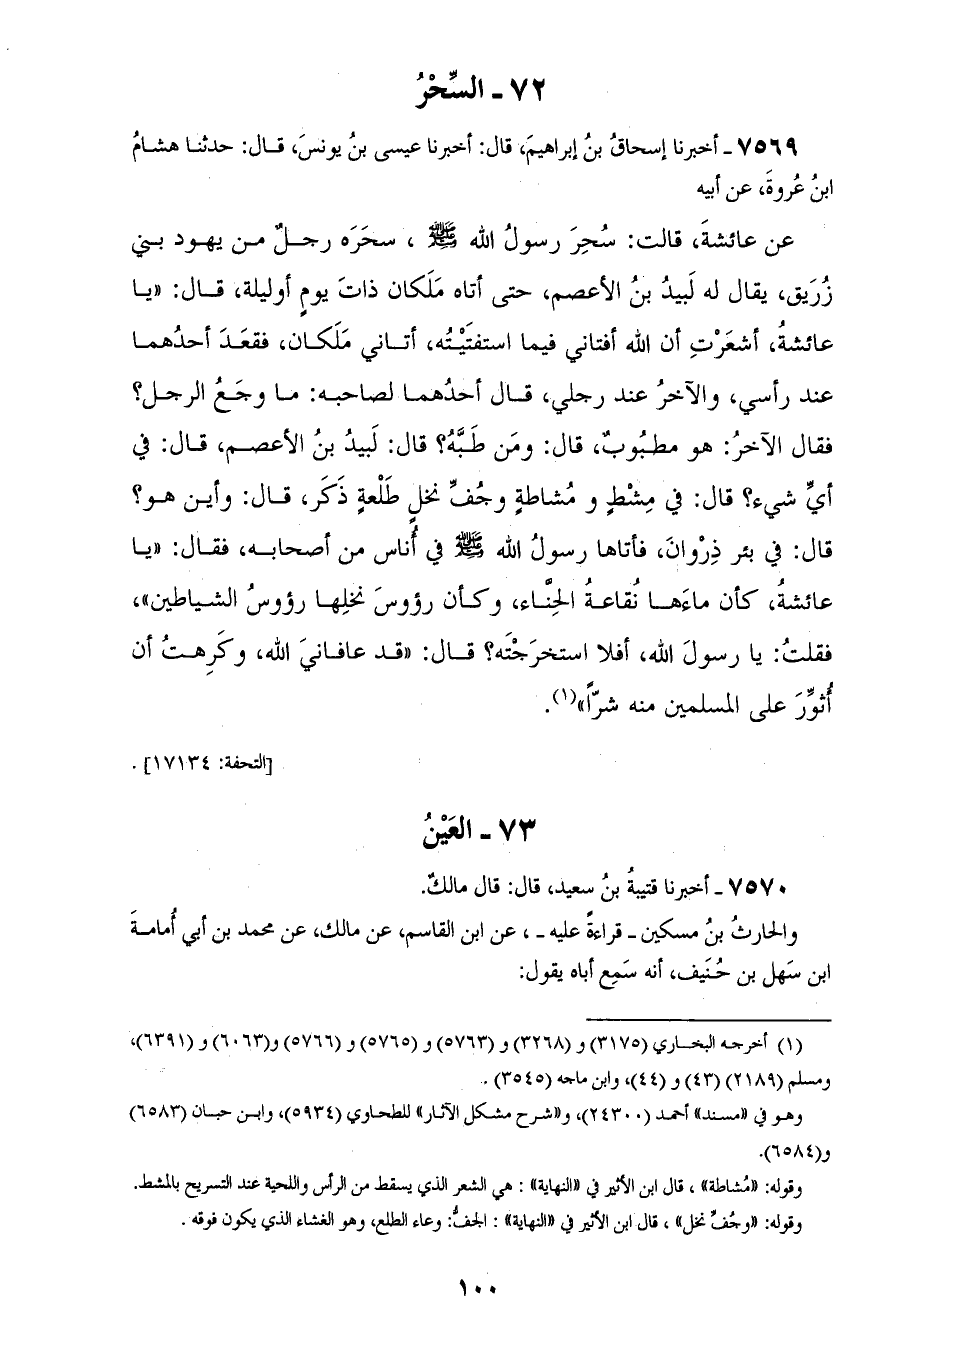 ٧٢ - السِّحْرُ
٧٥٦٩ - أخبرنا إسحاقُ بنُ إبراهيمَ، قال: أخبرنا عيسى بنُ يونسَ، قال: حدثنا هشامُ
ابنُ عُروةَ، عن أبيه
عن عائشةَ، قالت: سُحِرَ رسولُ الله ﷺ ، سحَرَه رجلٌ من يهود بني
زُرَيق، يقال له لَبيدُ بنُ الأعصم، حتى أتاه مَلَكان ذاتَ يومٍ أوليلة، قال: «يا
عائشةُ، أشعَرْتِ أن الله أفتاني فيما استفتَيْتُه، أتاني مَلَكان، فقعَدَ أحدُهما
عند رأسي، والآخرُ عند رجلي، قال أحدُهما لصاحبه: ما وجَعُ الرجل؟
فقال الآخرُ: هو مطبُوبٌ، قال: ومَن طَبَّهُ؟ قال: لَبيدُ بنُ الأعصم، قال: في
أيِّ شيء؟ قال: في مِشْطٍ و مُشاطةٍ وجُفِّ نخلٍ طَلْعةٍ ذَكَر، قال: وأين هو؟
قال: في بئر ذِرْوانَ، فأتاها رسولُ الله ﷺ في أُناس من أصحابه، فقال: «يا
عائشةُ، كأن ماءَها نُقاعةُ الحِنَّاء، وكأن رؤوسَ نخلِها رؤوسُ الشياطين»،
فقلتُ: يا رسولَ الله، أفلا استخرَجْتَه؟ قال: «قد عافانيَ الله، وكَرِهتُ أن
أُثوِّرَ على المسلمين منه شرّاً»(١).
[التحفة: ١٧١٣٤] .
٧٣ - العَيْنُ
٧٥٧٠ - أخبرنا قتيبةُ بنُ سعيد، قال: قال مالكٌ.
والحارثُ بنُ مسكين - قراءةً عليه - ، عن ابن القاسم، عن مالك، عن محمد بن أبي أُمامةَ
ابن سَهل بن حُنَيف، أنه سَمِع أباه يقول:
(١) أخرجه البخاري (٣١٧٥) و (٣٢٦٨) و (٥٧٦٣) و (٥٧٦٥) و (٥٧٦٦) و(٦٠٦٣) و (٦٣٩١)،
ومسلم (٢١٨٩) (٤٣) و (٤٤)، وابن ماجه (٣٥٤٥) .
وهو في «مسند» أحمد (٢٤٣٠٠)، و«شرح مشكل الآثار» للطحاوي (٥٩٣٤)، وابن حبان (٦٥٨٣)
و(٦٥٨٤).
وقوله: «مُشاطة» ، قال ابن الأثير في «النهاية» : هي الشعر الذي يسقط من الرأس واللحية عند التسريح بالمشط.
وقوله: «وجُفِّ نخل» ، قال ابن الأثير في «النهاية» : الجفُّ: وعاء الطلع، وهو الغشاء الذي يكون فوقه .
١٠٠